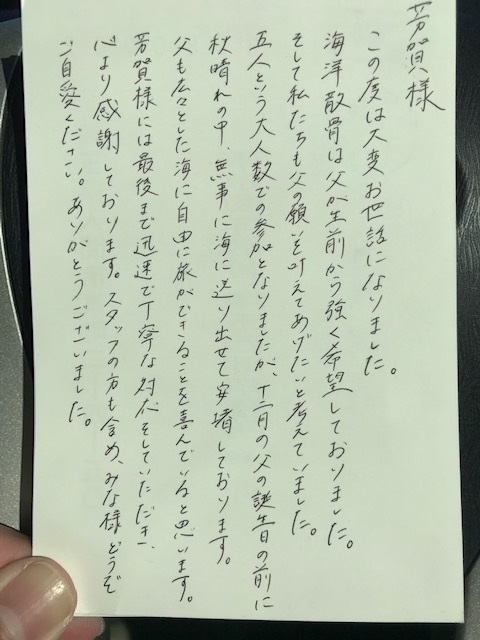 芳賀様
この度は大変お世話になりました。
海洋散骨は父が生前から強く希望しておりました。
そして私たちも父の願いを叶えてあげたいと考えていました。
五人という大人数での参加となりましたが、十二月の父の誕生日の前に
秋晴れの中、無事に海に送り出せて安堵しております。
父も広々とした海に自由に旅ができることを喜んでいると思います。
芳賀様には最後まで迅速で丁寧な対応をしていただき、
心より感謝しております。スタッフの方も含め、みな様どうぞ
ご自愛ください。ありがとうございました。